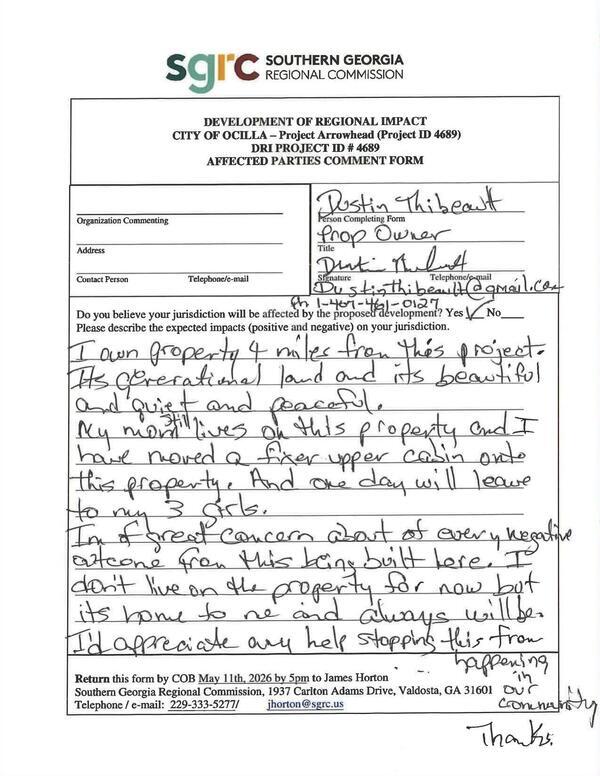 sgrc SOUTHERN GEORGIA
REGIONAL COMMISSION
DEVELOPMENT OF REGIONAL IMPACT
CITY OF OCILLA – Project Arrowhead (Project ID 4689)
DRI PROJECT ID # 4689
AFFECTED PARTIES COMMENT FORM
Organization Commenting
Address
Contact Person Telephone/e-mail
Dustin Thibeault
Person Completing Form
Prop Owner
Title
Dustin Thibeault
Signature Telephone/e-mail
Dustinthibeault@gmail.com
ph 1-407-461-0127
Do you believe your jurisdiction will be affected by the proposed development? Yes ✓ No
Please describe the expected impacts (positive and negative) on your jurisdiction.
I own property 4 miles from this project.
Its generational land and its beautiful
and quiet and peaceful.
My mom still lives on this property and I
have moved a fixer upper cabin onto
this property. And one day will leave
to my 3 girls.
Im of great concern about of every negative
outcome from this being built here. I
don't live on the property for now but
its home to me and always will be.
I'd appreciate any help stopping this from
happening
in
our
community
Return this form by COB May 11th, 2026 by 5pm to James Horton
Southern Georgia Regional Commission, 1937 Carlton Adams Drive, Valdosta, GA 31601
Telephone / e-mail: 229-333-5277/ jhorton@sgrc.us
Thanks.